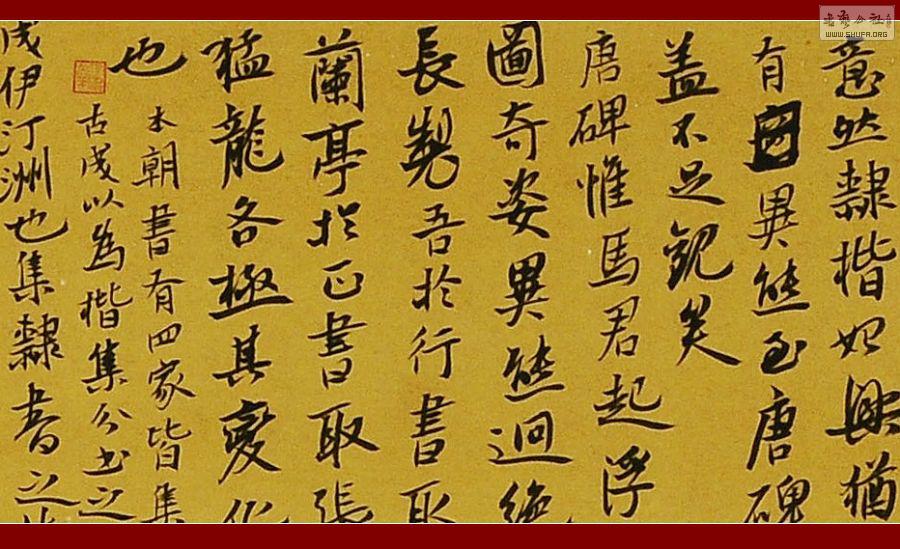 意然隸楷始興猶
有異態至唐碑
盖不足觀矣
唐碑惟馬君起浮
圖奇姿異態迥絶
長製吾於行書取
蘭亭於正書取張
猛龍各極其變化
也本朝書有四家皆集
古成以為楷集分書之
成伊汀洲也集隸書之
WWW.SHUFA.ORG